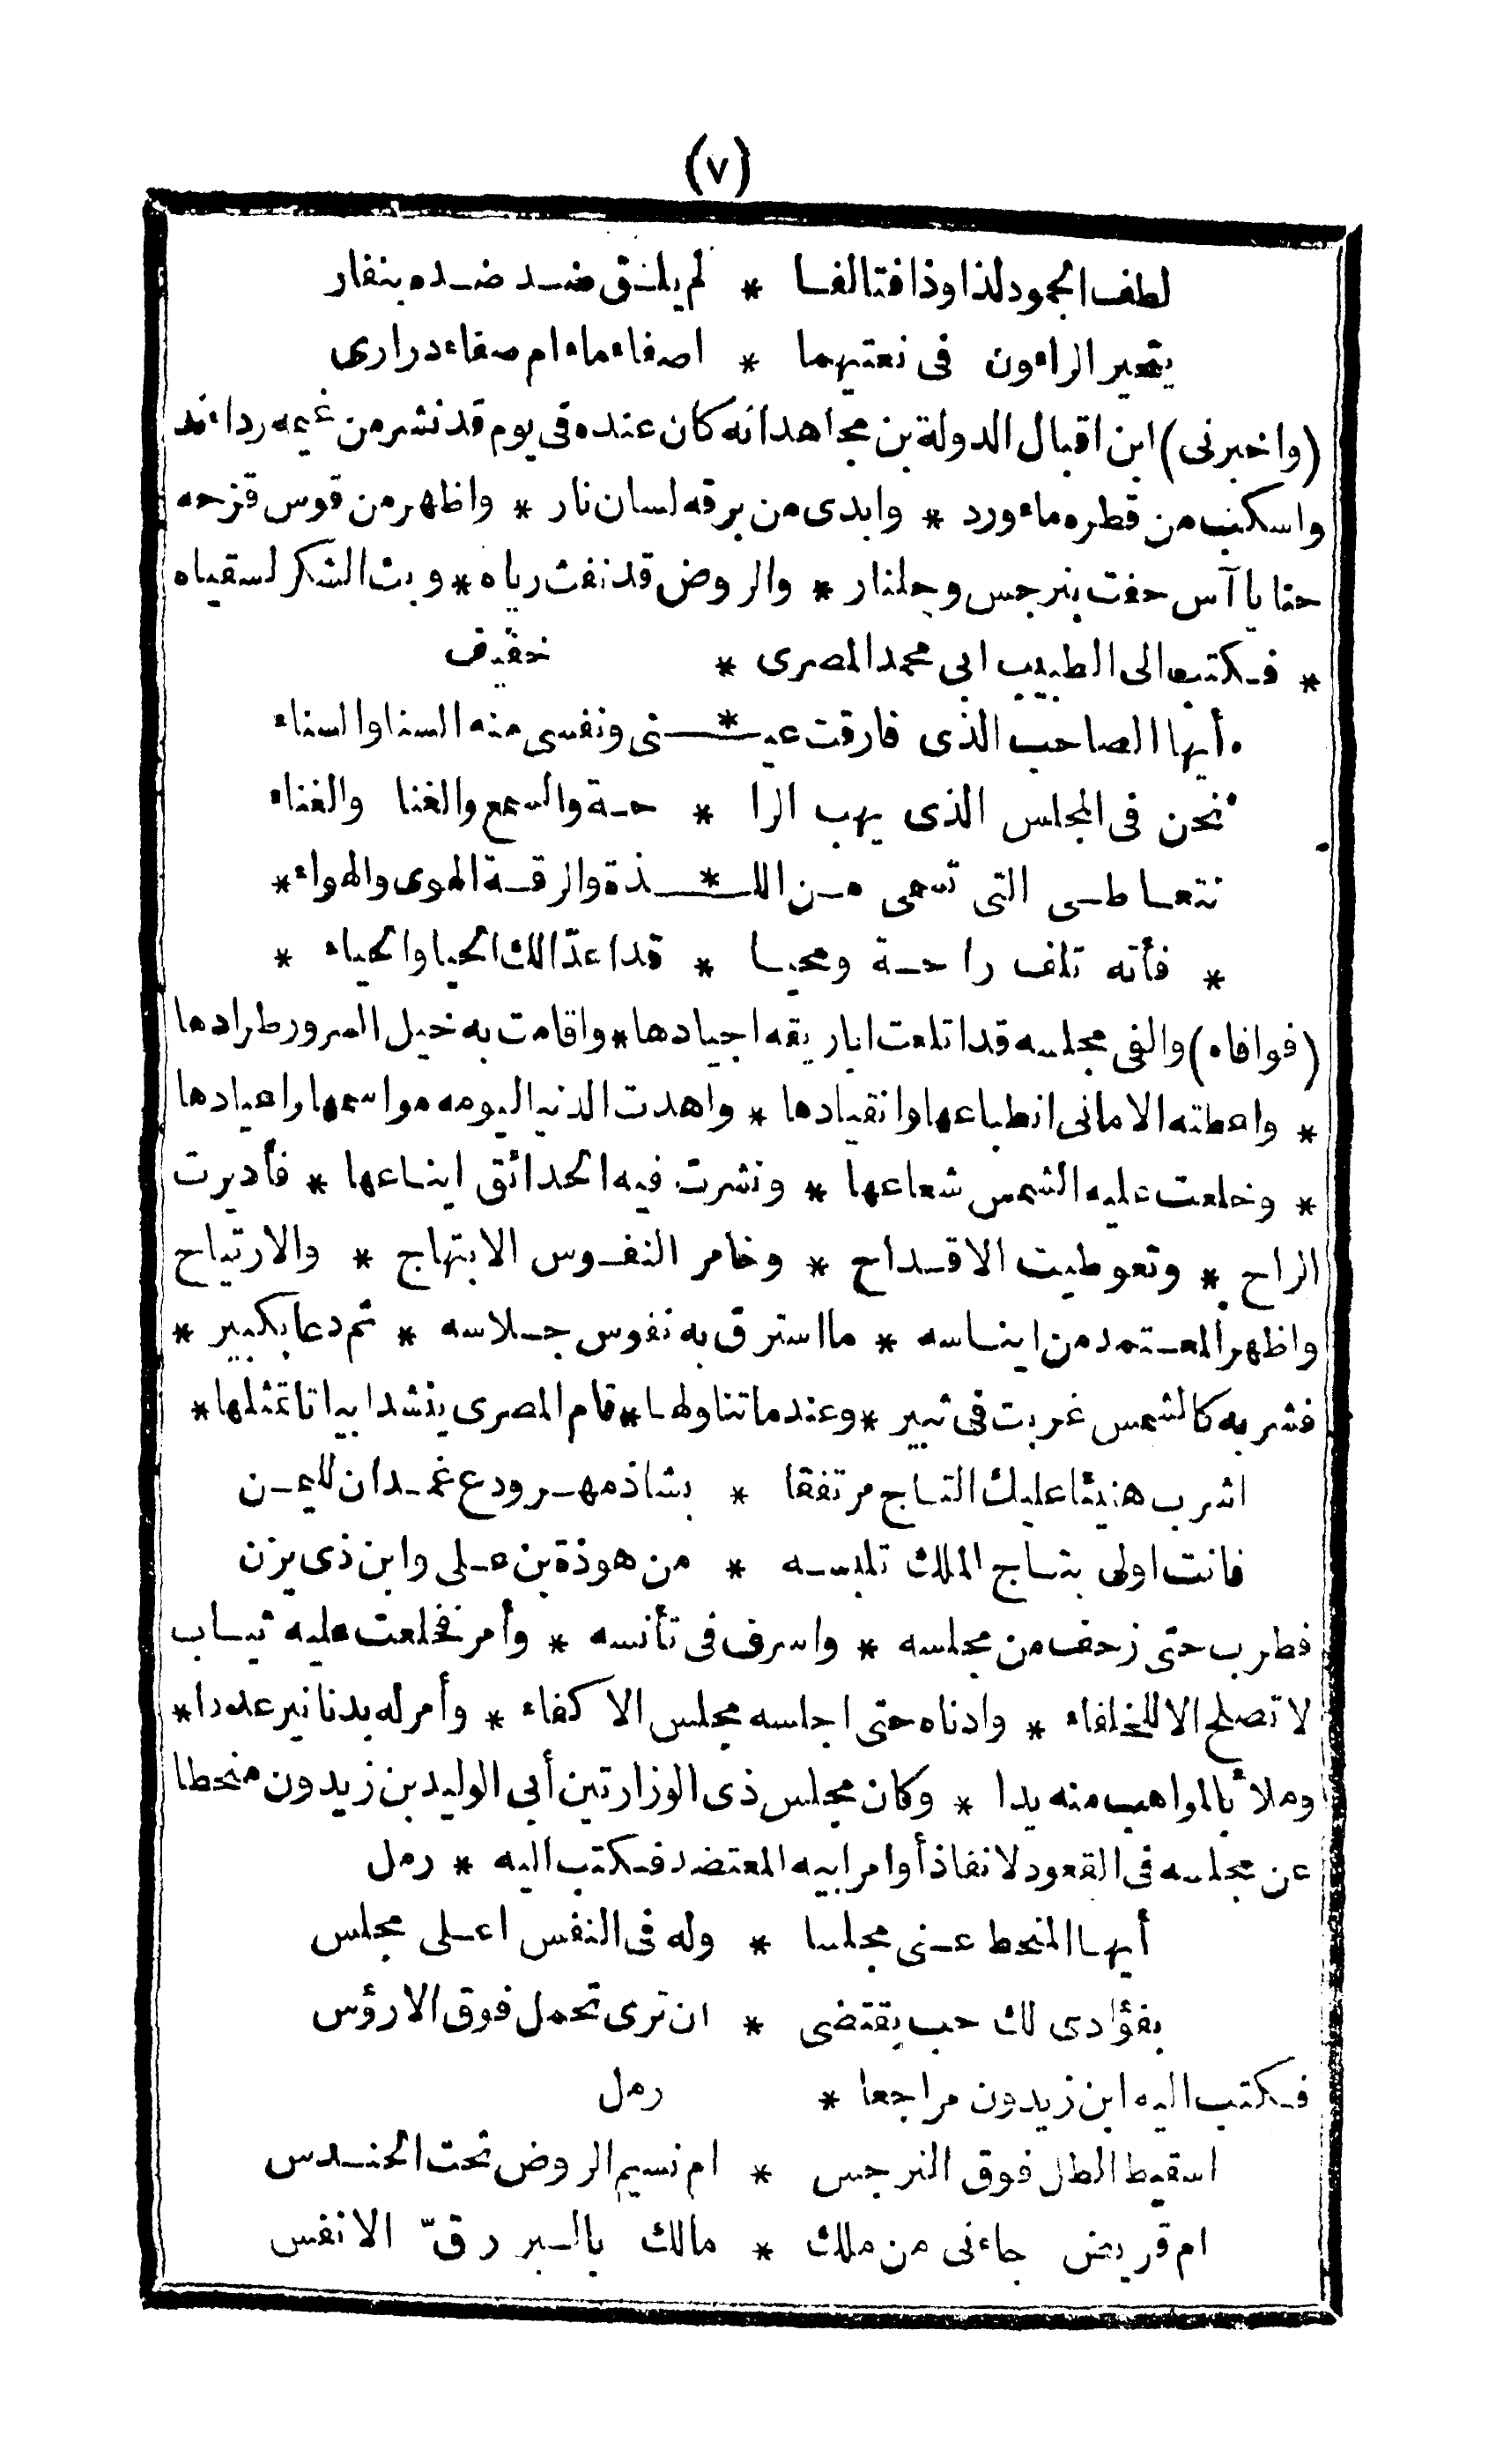 (٧)
لطف الجمود لذا وذا فتالفا * لم يلق ضد ضده بنفار
يتحير الراءون فى نعتيهما * اصفاء ماء ام صفاء درارى
(واخبرنى) ابن اقبال الدولة بن مجاهد انه كان عنده فى يوم قد نشر من غيمه رداء ند
واسكب من قطره ماء ورد * وابدى من برقه لسان نار * واظهر من قوس قزحه
حنايا آس حفت بنرجس وجلنار * والروض قد نفث رياه * وبث الشكر لسقياه
* فكتب الى الطبيب ابى محمد المصرى * خفيف
أيها الصاحب الذى فارقت عيـ * ـنى ونفسى منه السنا والسناء
نحن فى المجلس الذى يهب الرا * حة والسمع والغنا والغناء
نتعاطى التى تسمى من اللـ * ـذة والرقة الهوى والهواء *
* فأته تلف راحة ومحيا * قد اعدّا لك الحيا والحياء *
(فوافاه) والفى مجلسه قد اتلعت اباريقه اجيادها * واقامت به خيل السرور طرادها
* واعطته الامانى انطباعها وانقيادها * واهدت الدنيا ليومه مواسمها واعيادها
* وخلعت عليه الشمس شعاعها * ونشرت فيه الحدائق ايناعها * فأديرت
الراح * وتعوطيت الاقداح * وخامر النفوس الابتهاج * والارتياح
واظهر المعتمد من ايناسه * ما استرق به نفوس جلاسه * ثم دعا بكبير *
فشربه كالشمس غربت فى ثبير * وعندما تناولها * قام المصرى ينشد ابياتا تمثلها *
اشرب هنيئا عليك التاج مرتفقا * بشاذمهر ودع غمدان لليمن
فانت اولى بتاج الملك تلبسه * من هوذة بن على وابن ذى يزن
فطرب حتى زحف من مجلسه * واسرف فى تأنسه * وأمر فخلعت عليه ثياب
لا تصلح الا للخلفاء * وادناه حتى اجلسه مجلس الاكفاء * وأمر له بدنانير عددا *
وملأ بالمواهب منه يدا * وكان مجلس ذى الوزارتين أبى الوليد بن زيدون منحطا
عن مجلسه فى القعود لانفاذ أوامر ابيه المعتضد فكتب اليه * رمل
أيها المنحط عنى مجلسا * وله فى النفس اعلى مجلس
بفؤادى لك حب يقتضى * ان ترى تحمل فوق الارؤس
فكتب اليه ابن زيدون مراجعا * رمل
اسقيط الطل فوق النرجس * ام نسيم الروض تحت الحندس
ام قريض جاءنى من ملك * مالك بالبر رقّ الانفس